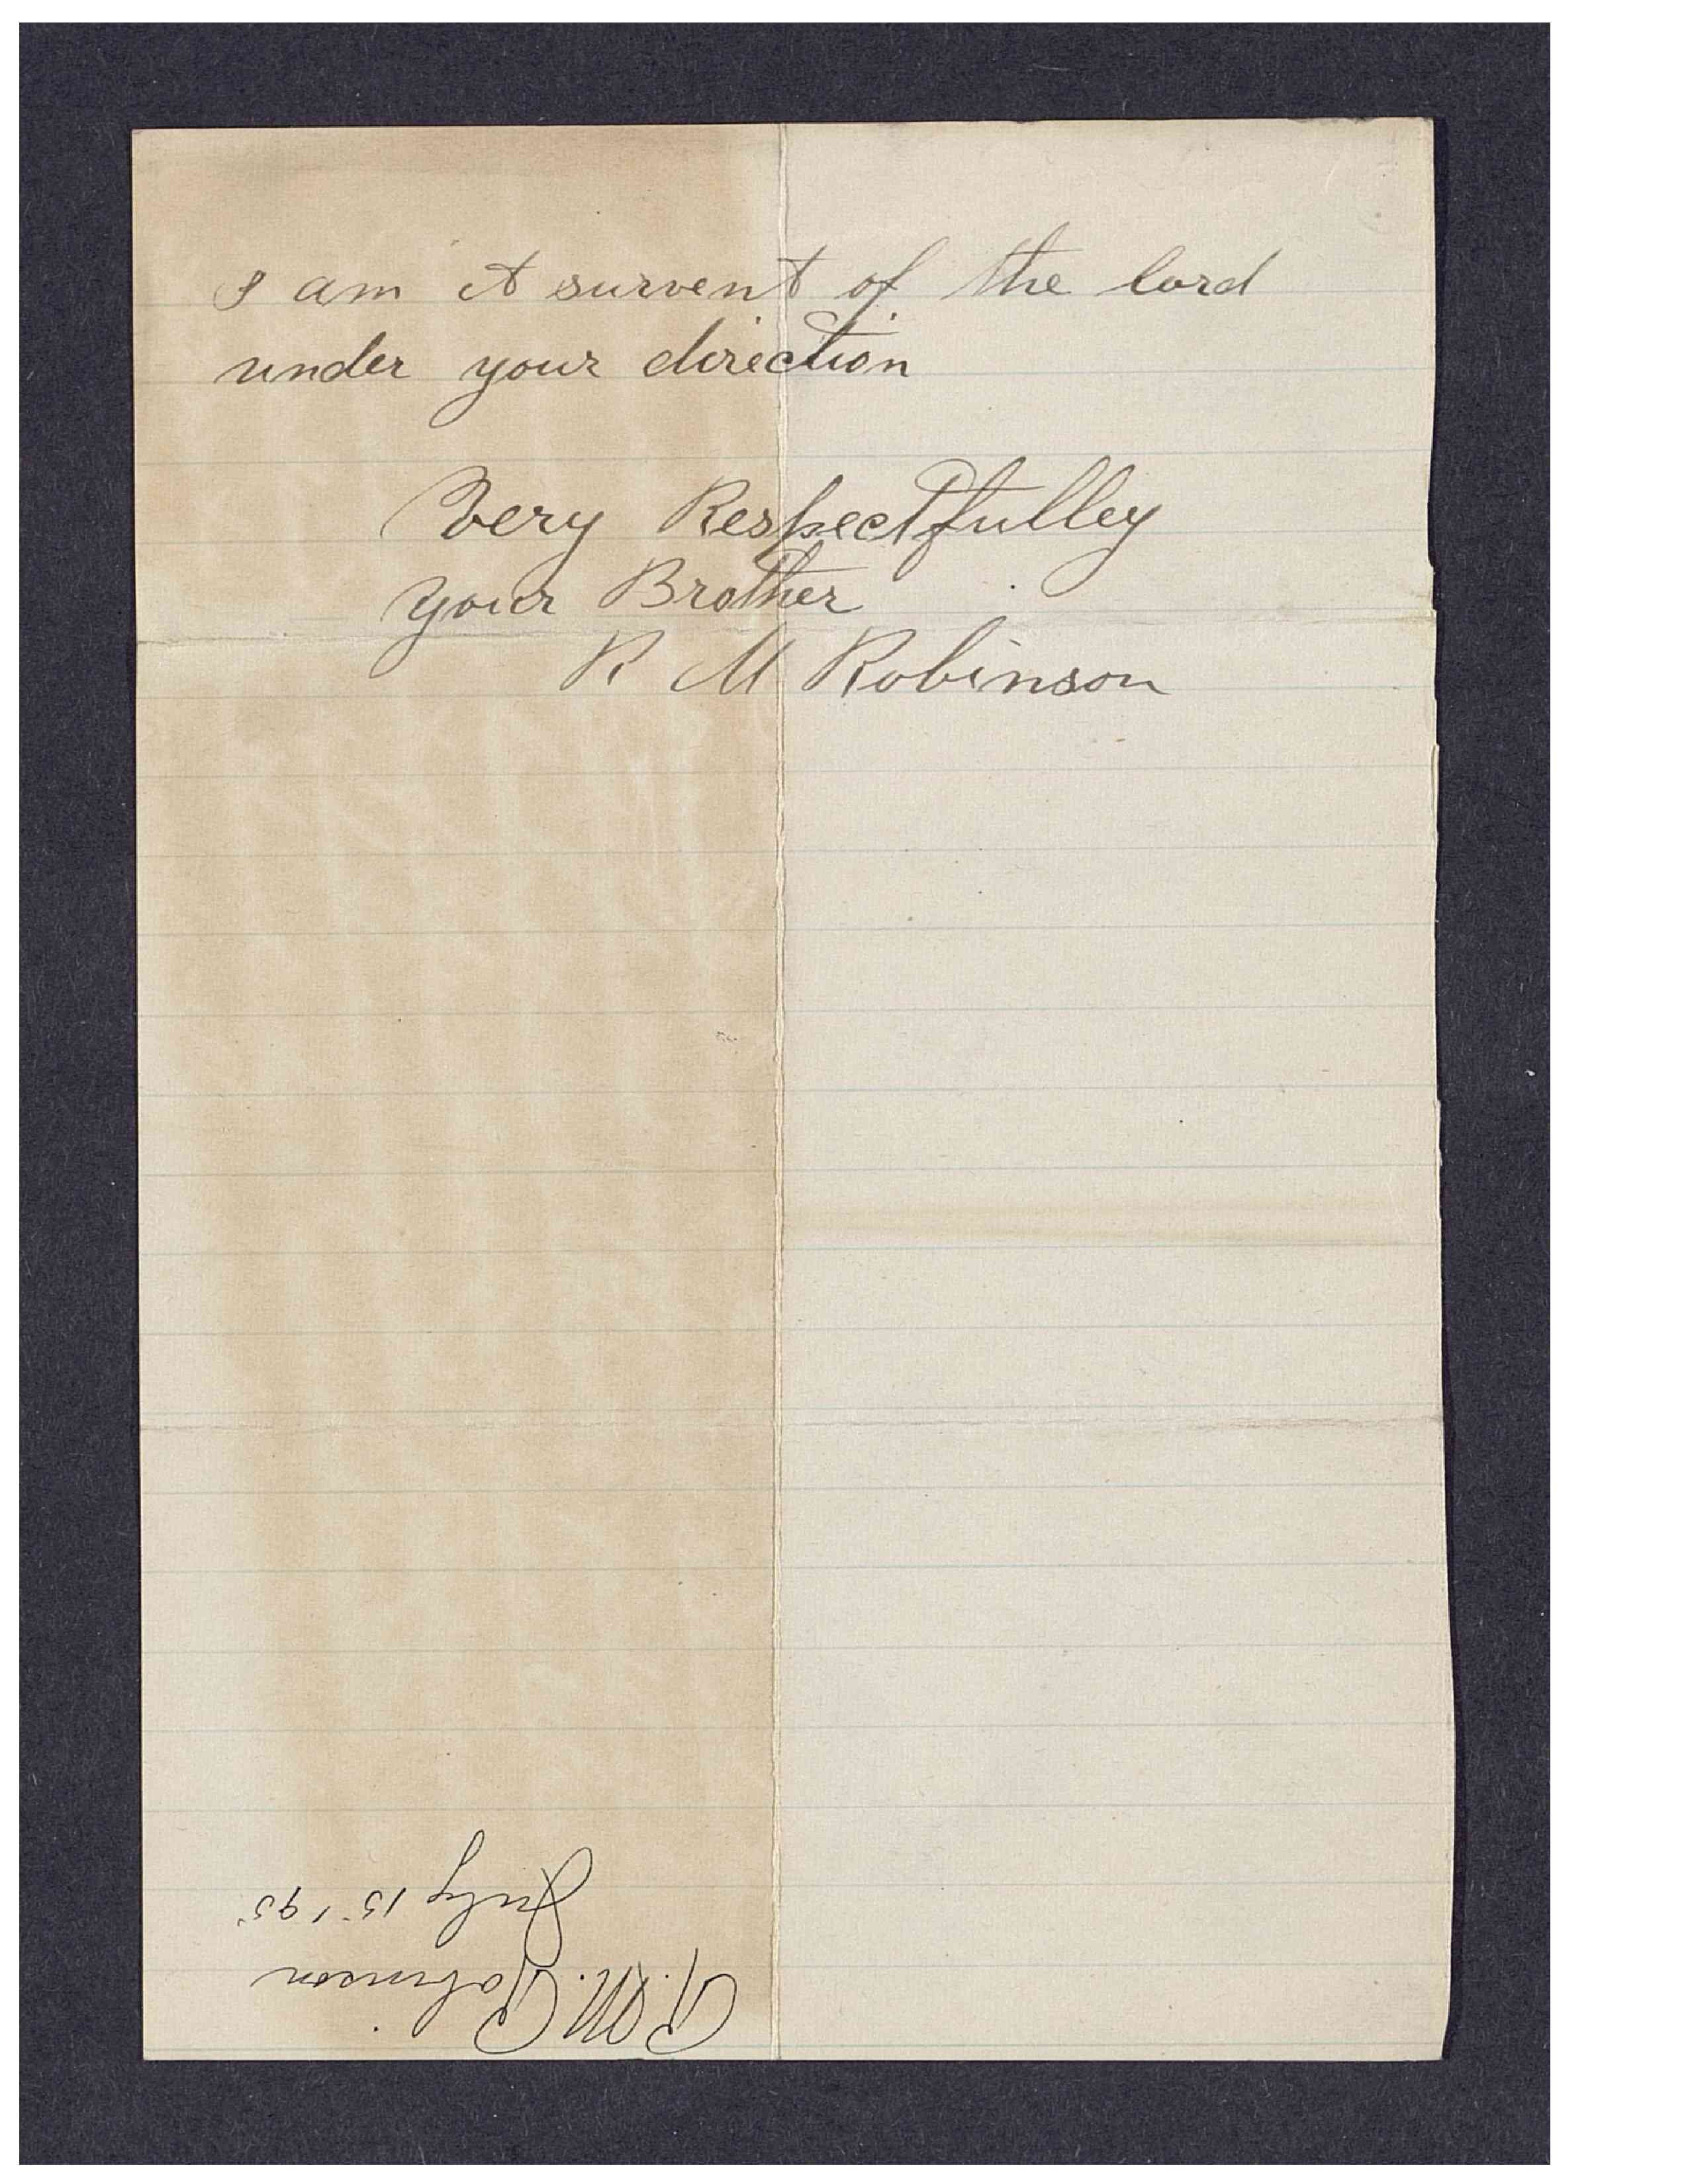 I am A survent of the lord
under your direction
Very Respectfulley
your Brother
R M Robinson
R. M. Robinson
July 15 '95